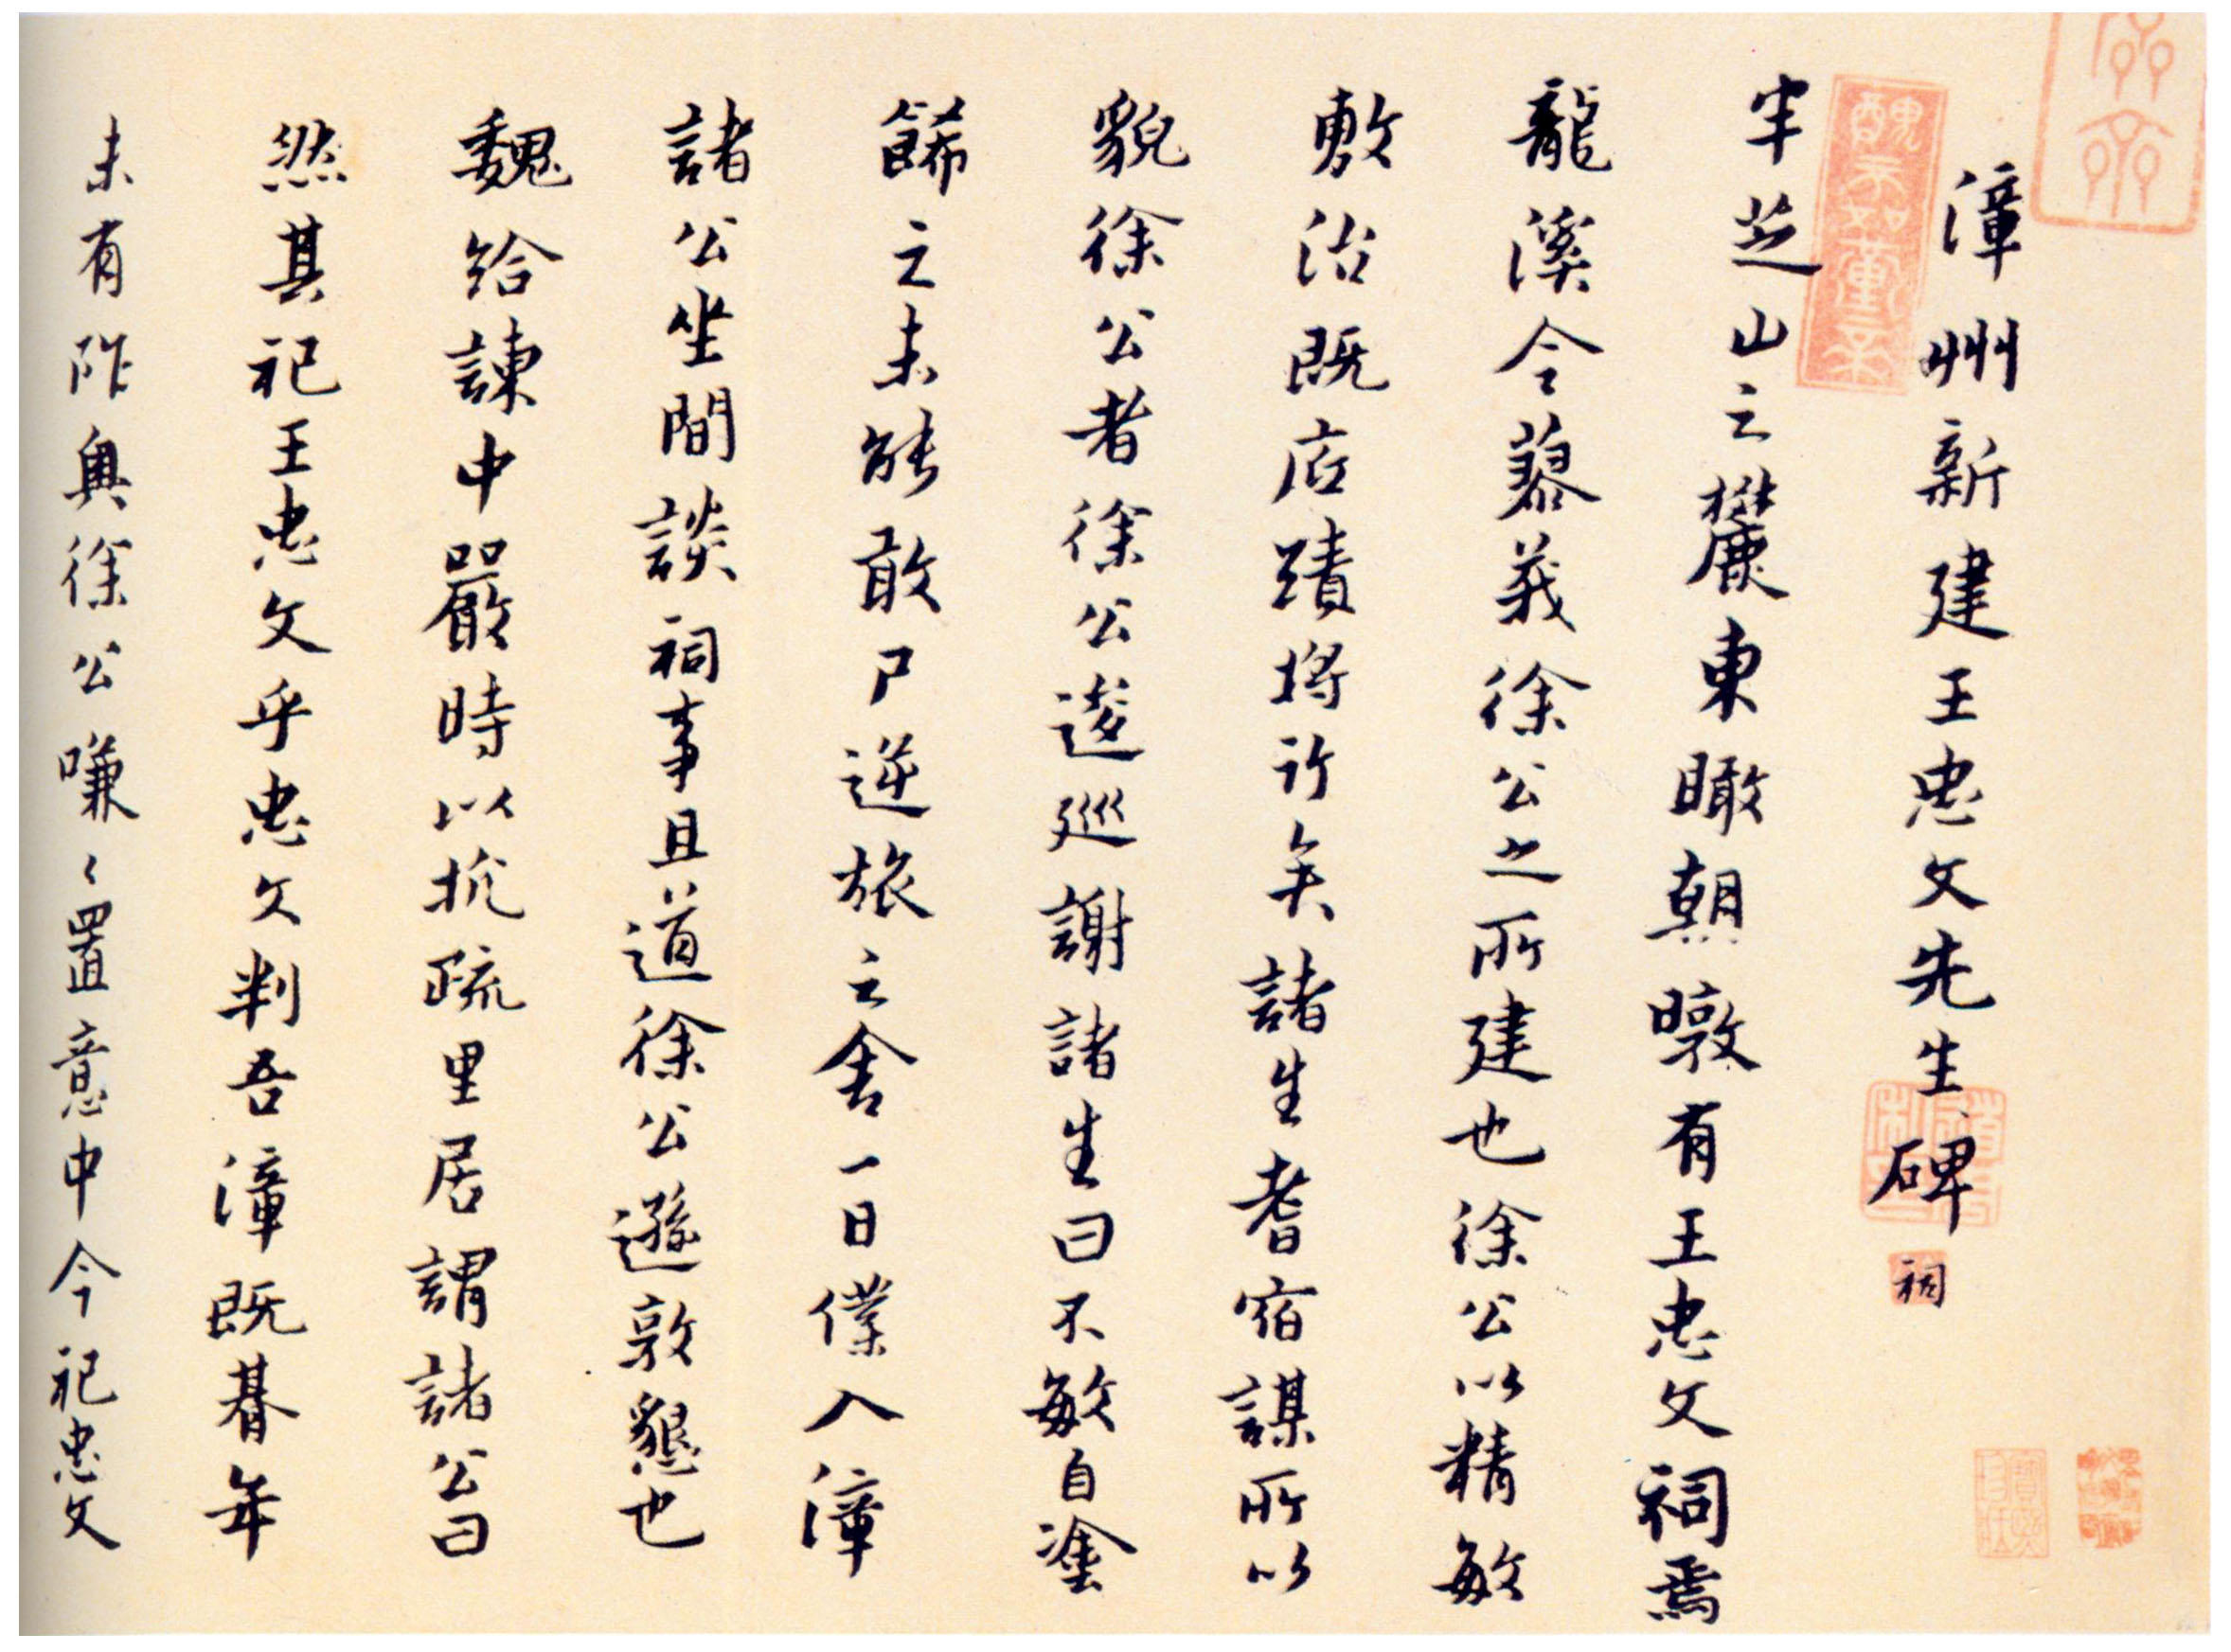 漳州新建王忠文先生碑
祠
半芝山之麓東瞰朝暾有王忠文祠焉
龍溪令蔡義徐公之所建也徐公以精敏
敷治既店蹟將行矣諸生耆宿謀所以
貌徐公者徐公逡巡謝諸生曰不敏自塗
餙之未能敢尸逆旅之舍一日僕入漳
諸公坐間談祠事且道徐公遜敦懇也
魏給諫中嚴時以抗疏里居謂諸公曰
然其祀王忠文乎忠文判吾漳既朞年
未有阼奥徐公嗛〻置意中今祀忠文